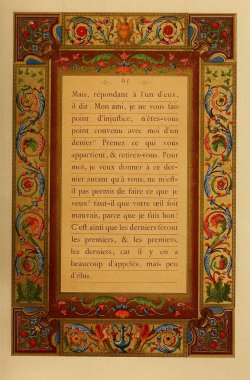 65
Mais, répondant à l'un d'eux,
il dit: Mon ami, je ne vous fais
point d'injustice; n'êtes-vous
point convenu avec moi d'un
denier? Prenez ce qui vous
appartient, & retirez-vous. Pour
moi, je veux donner à ce der-
nier autant qu'à vous, ne m'est-
il pas permis de faire ce que je
veux? faut-il que votre œil soit
mauvais, parce que je suis bon?
C'est ainsi que les derniers seront
les premiers, & les premiers,
les derniers, car il y en a
beaucoup d'appelés, mais peu
d'élus.